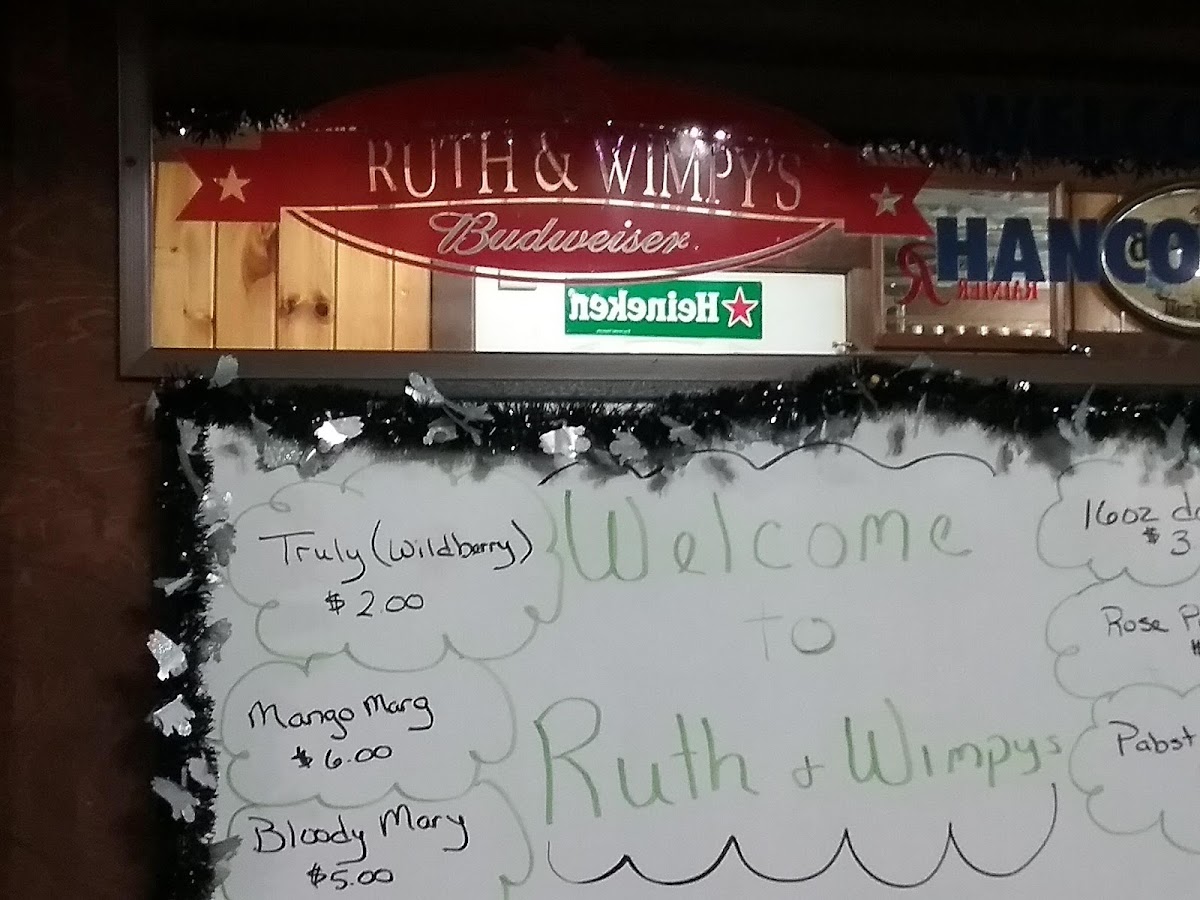 RUTH & WIMPY'S
Budweiser
Heineken
RAINIER
HANCO
Truly (Wildberry)
$2.00
Mango Marg
$6.00
Bloody Mary
$5.00
Welcome
to
Ruth & Wimpys
16oz
$3
Rose
Pabst